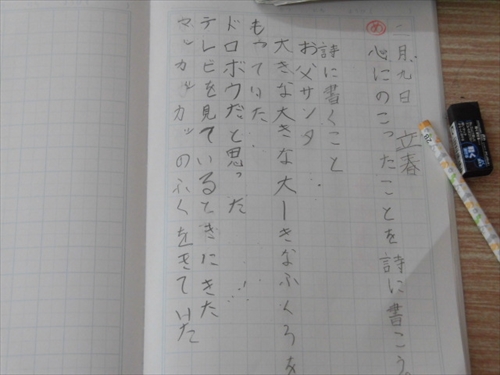 二月九日 立春
め 心にのこったことを詩に書こう。
詩に書くこと
お父サンタ
大きな大きな大ーきなふくろを
もっていた
ドロボウだと思った
テレビを見ているときにきた
マッカッカッのふくをきていた